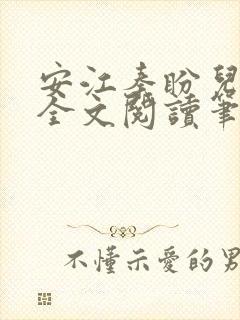 安江秦盼兒
全文閱讀筆
不懂示愛的男